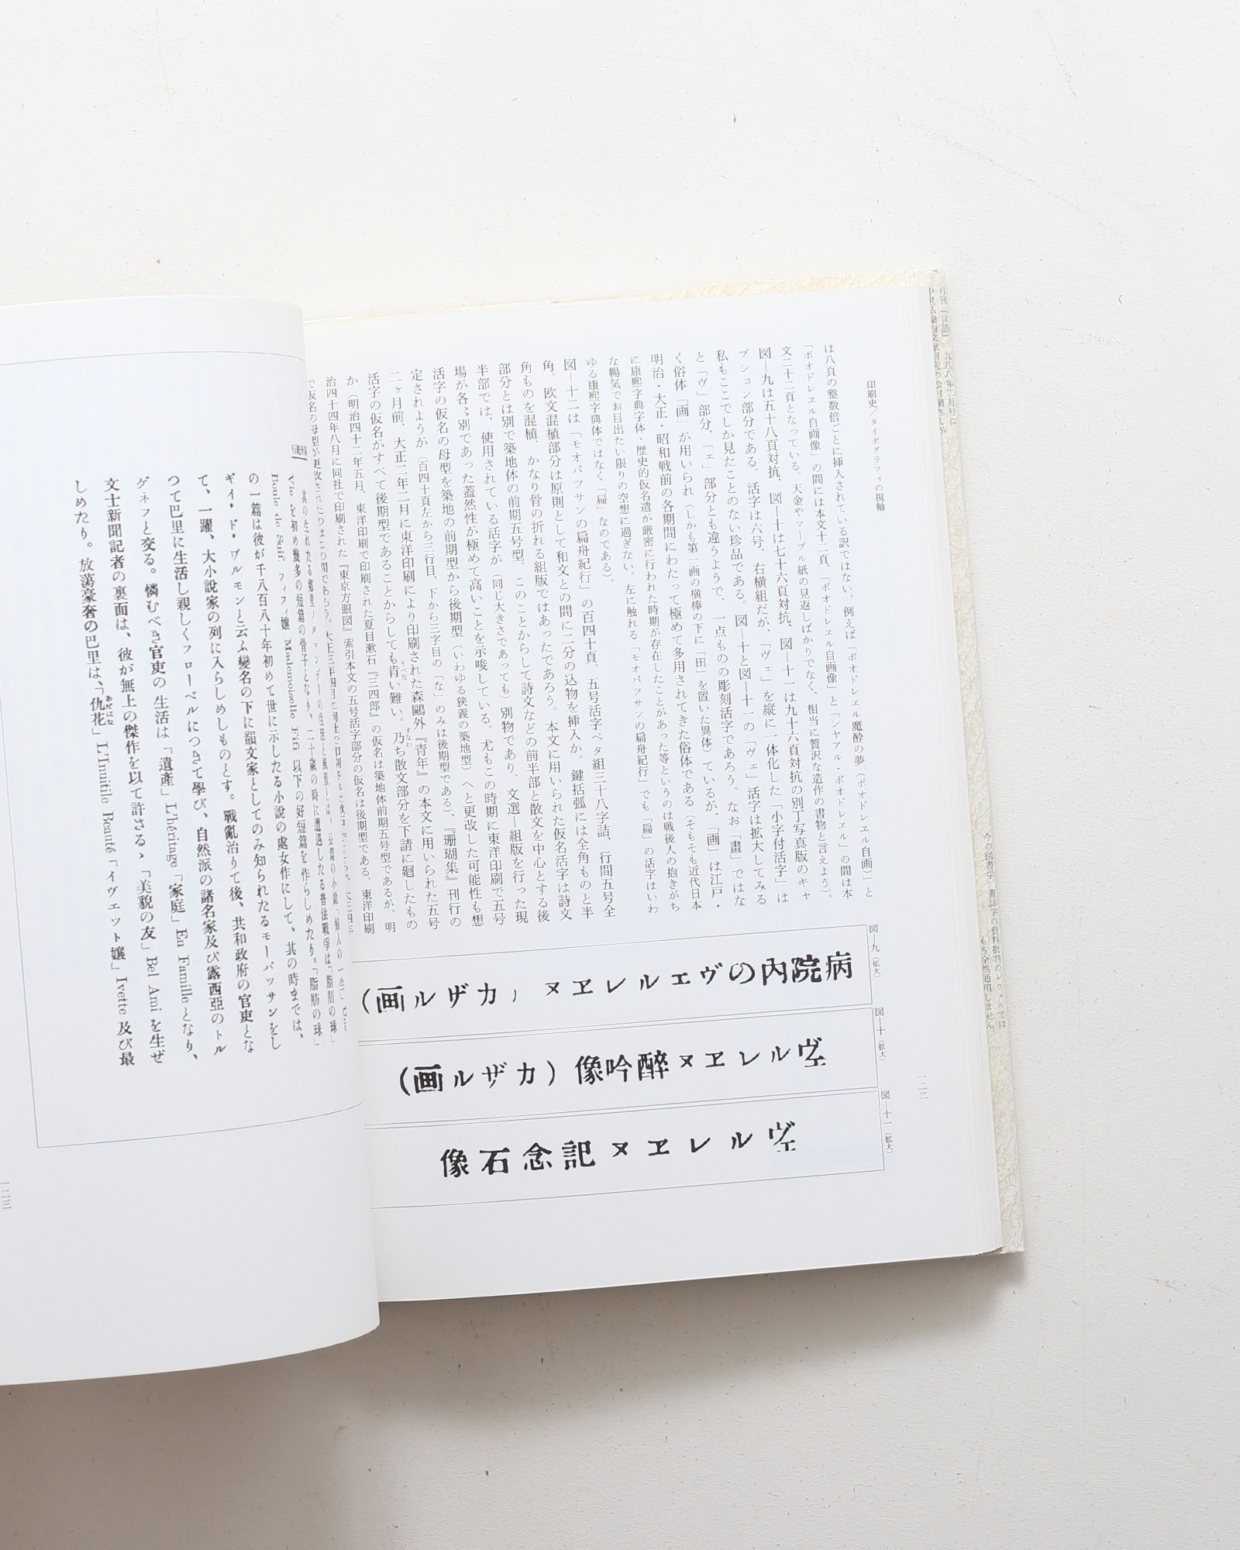 印刷史／タイポグラフィの視軸
は八頁の整数倍ごとに挿入されている訳ではない。例えば「ボオドレエル魔酔の夢（ボオドレエル自画）」と
「ボオドレエル自画像」の間には本文十二頁、「ボオドレエル自画像」と「シヤアル・ボオドレエル」の間は本
文二十二頁となっている。天金やマーブル紙の見返しばかりでなく、相当に贅沢な造作の書物と言えよう）。
図―九は五十八頁対抗、図―十は七十六頁対抗、図―十一は九十六頁対抗の別丁写真版のキャ
プション部分である。活字は六号、右横組だが、「ヴェ」を縦に一体化した「小字付活字」は
私もここでしか見たことのない珍品である。図―十と図―十一の「ヴェ」活字は拡大してみる
と「ヴ」部分、「ェ」部分とも違うようで、一点ものの彫刻活字であろう。なお「畫」ではな
く俗体「画」が用いられ（しかも第一画の横棒の下に「田」を置いた異体）ているが、「画」は江戸・
明治・大正・昭和戦前の各期間にわたって極めて多用されてきた俗体である（そもそも近代日本
に康煕字典字体・歴史的仮名遣が厳密に行われた時期が存在したことがあった等というのは戦後人の抱きがち
な暢気でお目出たい限りの空想に過ぎない。左に触れる「モオパツサンの扁舟紀行」でも「扁」の活字はいわ
ゆる康煕字典体ではなく「扁」なのである）。
図―十二は「モオパツサンの扁舟紀行」の百四十頁。五号活字ベタ組三十八字詰、行間五号全
角、欧文混植部分は原則として和文との間に二分の込物を挿入か。鍵括弧には全角ものと半
角ものを混植、かなり骨の折れる組版ではあったであろう。本文に用いられた仮名活字は詩文
部分とは別で築地体の前期五号型。このことからして詩文などの前半部と散文を中心とする後
半部では、使用されている活字が（同じ大きさであっても）別物であり、文選―組版を行った現
場が各々別であった蓋然性が極めて高いことを示唆している。尤もこの時期に東洋印刷で五号
活字の仮名の母型を築地の前期型から後期型（いわゆる狭義の築地型）へと更改した可能性も想
定されようが（百四十頁左から三行目、下から三字目の「な」のみは後期型である）、『珊瑚集』刊行の
二ヶ月前、大正二年二月に東洋印刷により印刷された森鷗外『青年』の本文に用いられた五号
活字の仮名がすべて後期型であることからしても肯い難い。乃ち散文部分を下請に廻したもの
か（明治四十二年五月、東洋印刷で印刷された夏目漱石『三四郎』の仮名は築地体前期五号型であるが、明
治四十四年八月に同社で印刷された『東京方眼図』索引本文の五号活字部分の仮名は後期型である。東洋印刷
図―九（拡大）
病院内のヴェルレヱヌ（カザル画）
図―十（拡大）
ヴェルレヱヌ醉吟像（カザル画）
図―十一（拡大）
ヴェルレヱヌ記念石像
一二二
Boule de Suif, フィフィ嬢 Mademoiselle Fifi 以下の好短篇を作らしめたり。「脂肪の球」
の一篇は彼が千八百八十年初めて世に示したる小説の處女作にして、其の時までは、
ギイ・ド・ヷルモンと云ふ變名の下に韻文家としてのみ知られたるモーパッサンをし
て、一躍、大小說家の列に入らしめしものとす。戰亂治りて後、共和政府の官吏とな
つて巴里に生活し親しくフローベルにつきて學び、自然派の諸名家及び露西亞のトル
グネフと交る。憐むべき官吏の生活は「遺產」L'héritage「家庭」En Familleとなり、
文士新聞記者の裏面は、彼が無上の傑作を以て許さる、「美貌の友」Bel Amiを生ぜ
しめたり。放蕩豪奢の巴里は、「仇花」L'Inutile Beauté「イヴェット嬢」Ivette及び最
一二三